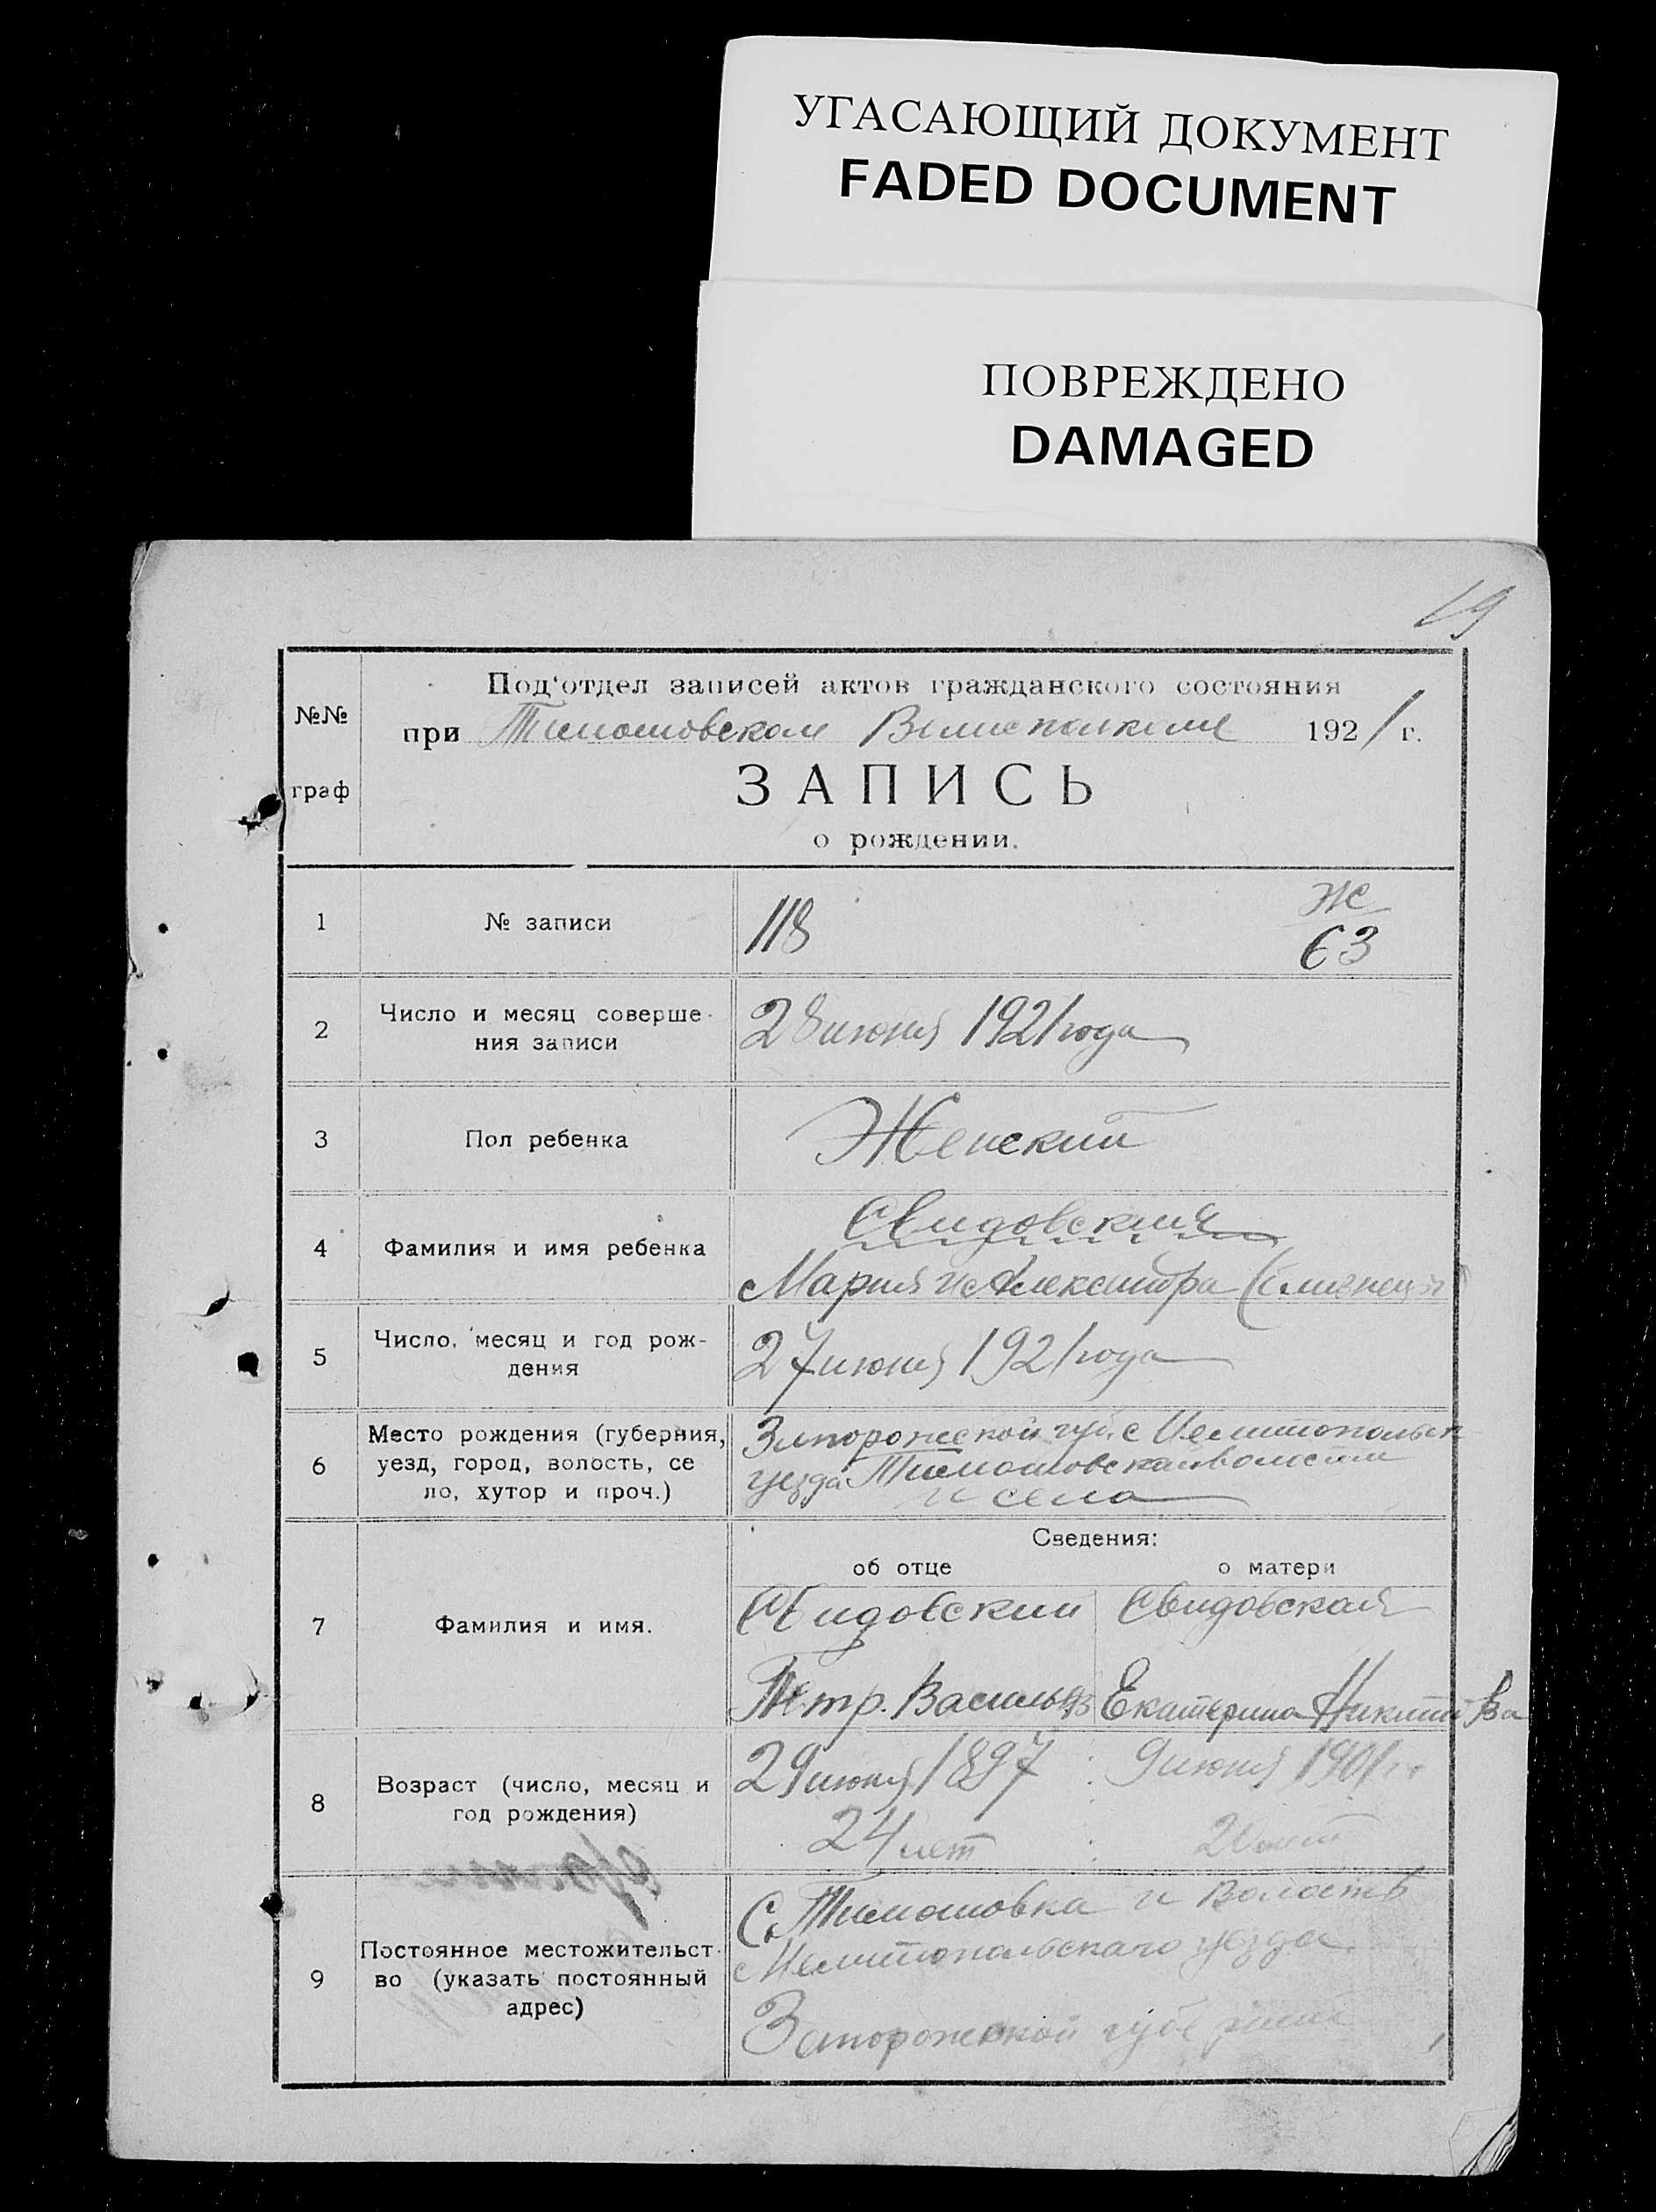 УГАСАЮЩИЙ ДОКУМЕНТ
FADED DOCUMENT
ПОВРЕЖДЕНО
DAMAGED
19
№№
граф
Под'отдел записей актов гражданского состояния
при Тимошовском Волисполкоме 1921 г.
ЗАПИСЬ
о рождении.
1 № записи 118 Ж
63
2 Число и месяц соверше-
ния записи
28 июня 1921 года
3 Пол ребенка Женский
4 Фамилия и имя ребенка
Свидовския
Мария и Александра (близнецы
5 Число, месяц и год рож-
дения
27 июня 1921 года
6 Место рождения (губерния,
уезд, город, волость, се
ло, хутор и проч.)
Запорожской губ.
уезда Тимошовской волости
и села
Сведения:
об отце о матери
7 Фамилия и имя.
Свидовский Свидовская
Петр. Васильев Екатерина
8 Возраст (число, месяц и
год рождения)
29 июня 1897 9 июня 1901 г.
24 лет 20 лет
9 Постоянное местожительст-
во (указать постоянный
адрес)
С. Тимошовка и Волость
Мелитопольскаго уезда
Запорожской губернии